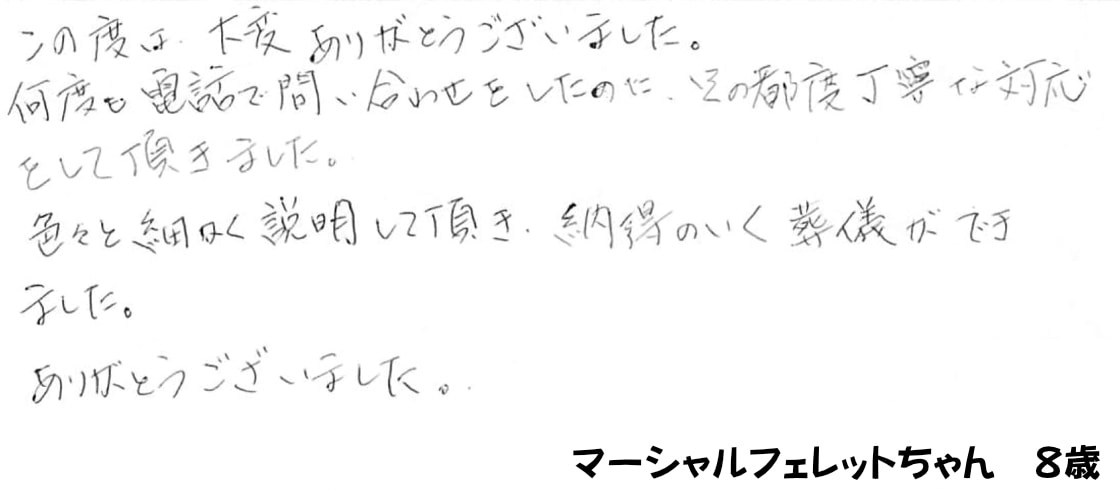 この度は、大変ありがとうございました。
何度も電話で問い合わせをしたのに、その都度丁寧な対応
をして頂きました。
色々と細かく説明して頂き、納得のいく葬儀ができ
ました。
ありがとうございました。
マーシャルフェレットちゃん　8歳